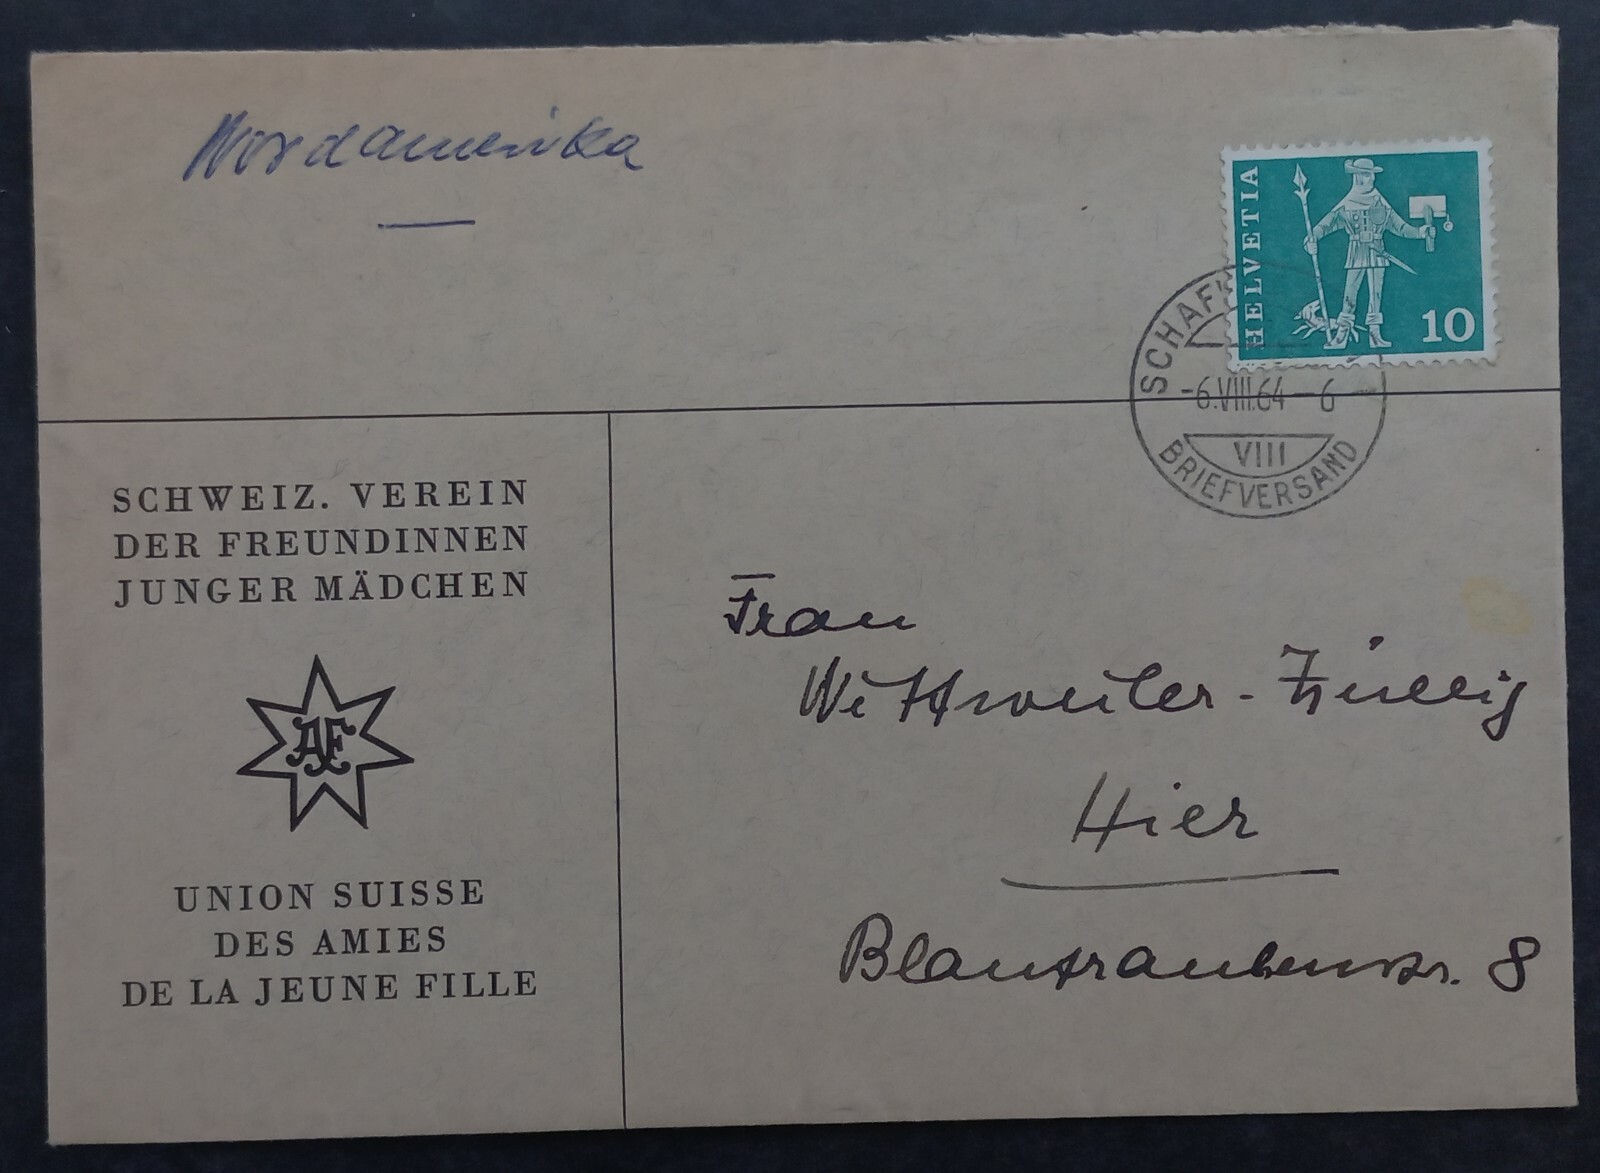 Nordamerika
HELVETIA
10
SCHAFF
-6.VIII.64-6
VIII
BRIEFVERSAND
SCHWEIZ. VEREIN
DER FREUNDINNEN
JUNGER MÄDCHEN
AF
UNION SUISSE
DES AMIES
DE LA JEUNE FILLE
Frau
Wittweiler-Züllig
Hier
Blautraubenstr. 8